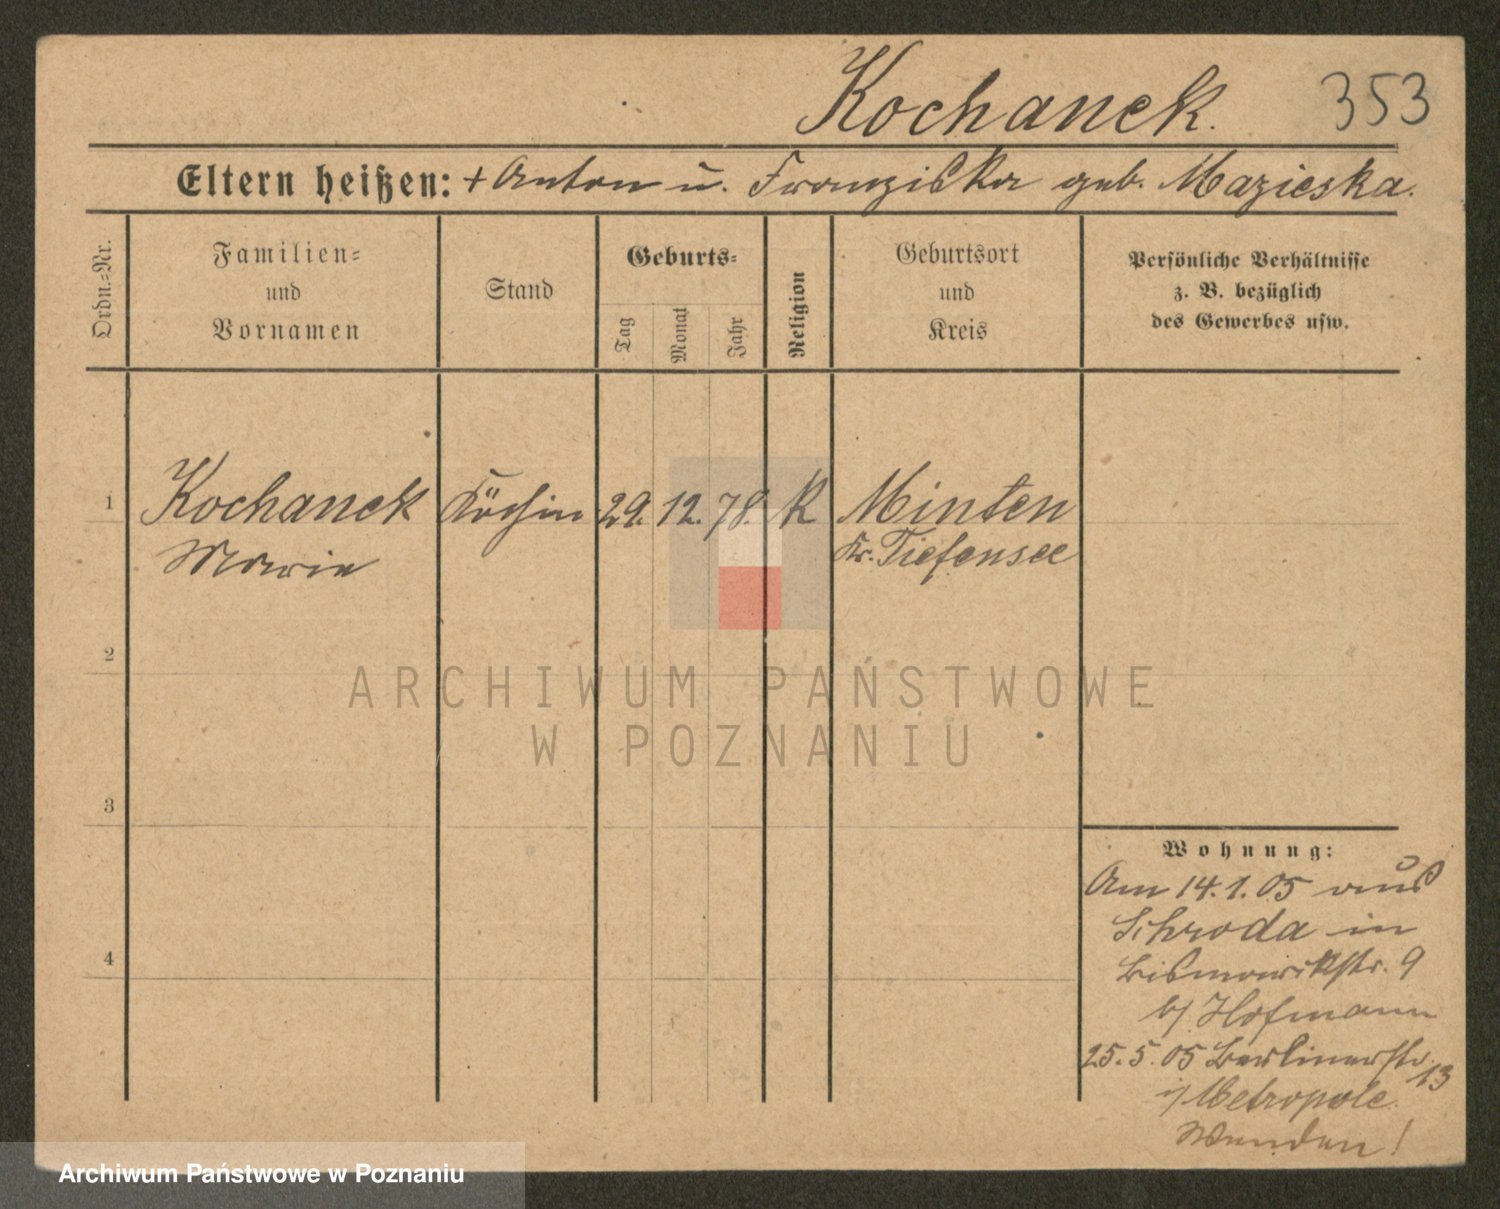 Kochanek. 353
Eltern heißen: + Anton u. Franziska geb. Mazieska.
Ordn.-Nr.
Familien-
und
Vornamen
Stand
Geburts-
Tag
Monat
Jahr
Religion
Geburtsort
und
Kreis
Persönliche Verhältnisse
z. B. bezüglich
des Gewerbes usw.
1 Kochanek Köchin 29. 12. 78. K Minten
Marie Kr. Tiefensee
2
ARCHIWUM PAŃSTWOWE
W POZNANIU
3
Wohnung:
Am 14.1.05 aus
Schroda in
4
Bismarckstr. 9
b/ Hofmann
25.5.05 Berlinerstr. 13
i/ Metropole.
Wenden!
Archiwum Państwowe w Poznaniu